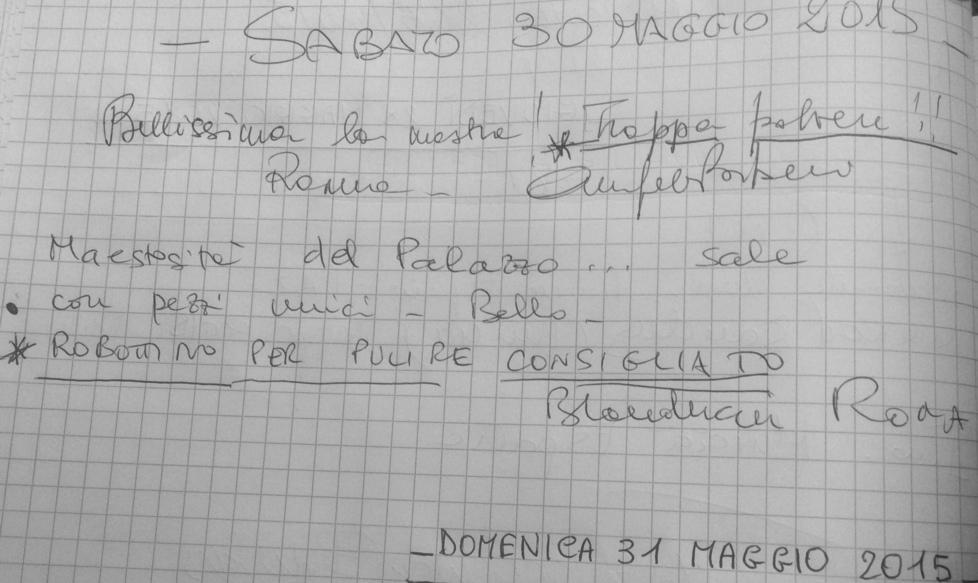 - SABATO 30 MAGGIO 2015 -
Bellissima la mostra! * Troppa polvere!!
Roma -
Maestosità del Palazzo ... sale
• con pezzi unici - Bello -
* ROBOTTINO PER PULIRE CONSIGLIATO
- DOMENICA 31 MAGGIO 2015